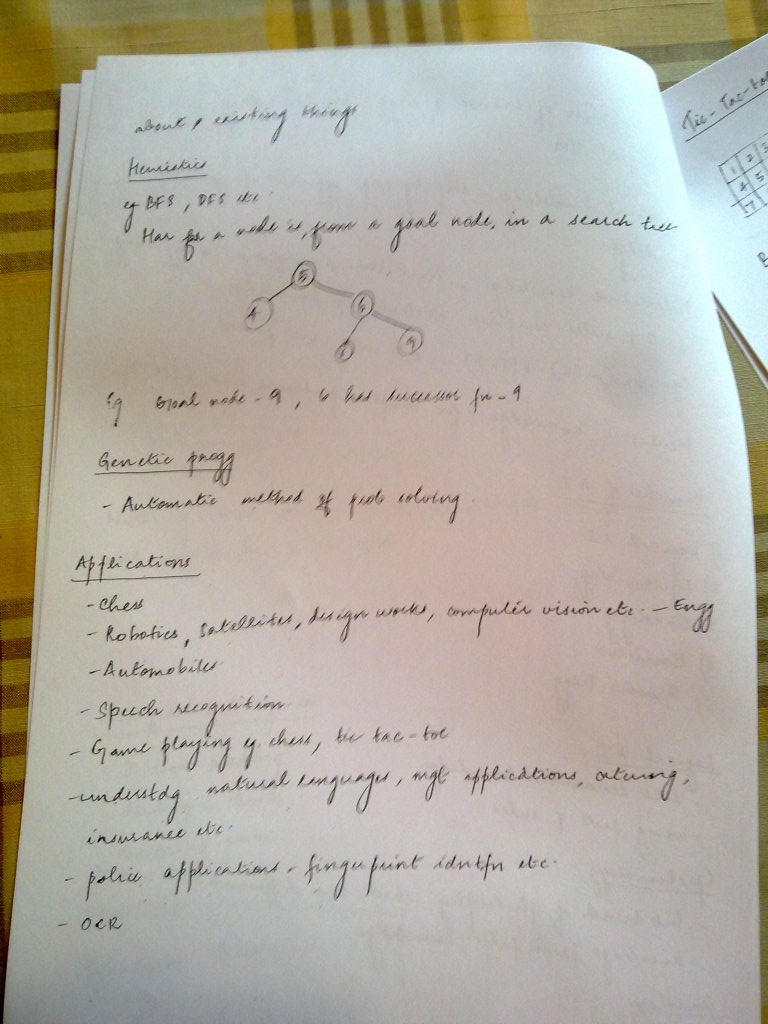 about existing things
Heuristics
eg BFS, DFS etc.
Har a node is, from a goal node, in a search tree
5
4 6
9
Eg Goal node - 9, 6 has successor fn - 9
Genetic progg
- Automatic method of prob solving.
Applications
- Chess
- Robotics, Satellites, design works, computer vision etc. - Engg
- Automobiles
- Speech recognition
- Game playing eg. chess, tic tac-toe
- understdg natural languages, mgt applications,
insurance etc.
- police applications - fingerprint idntfn etc.
- OCR
Tic-Tac-toe
1 2 3
4 5
7